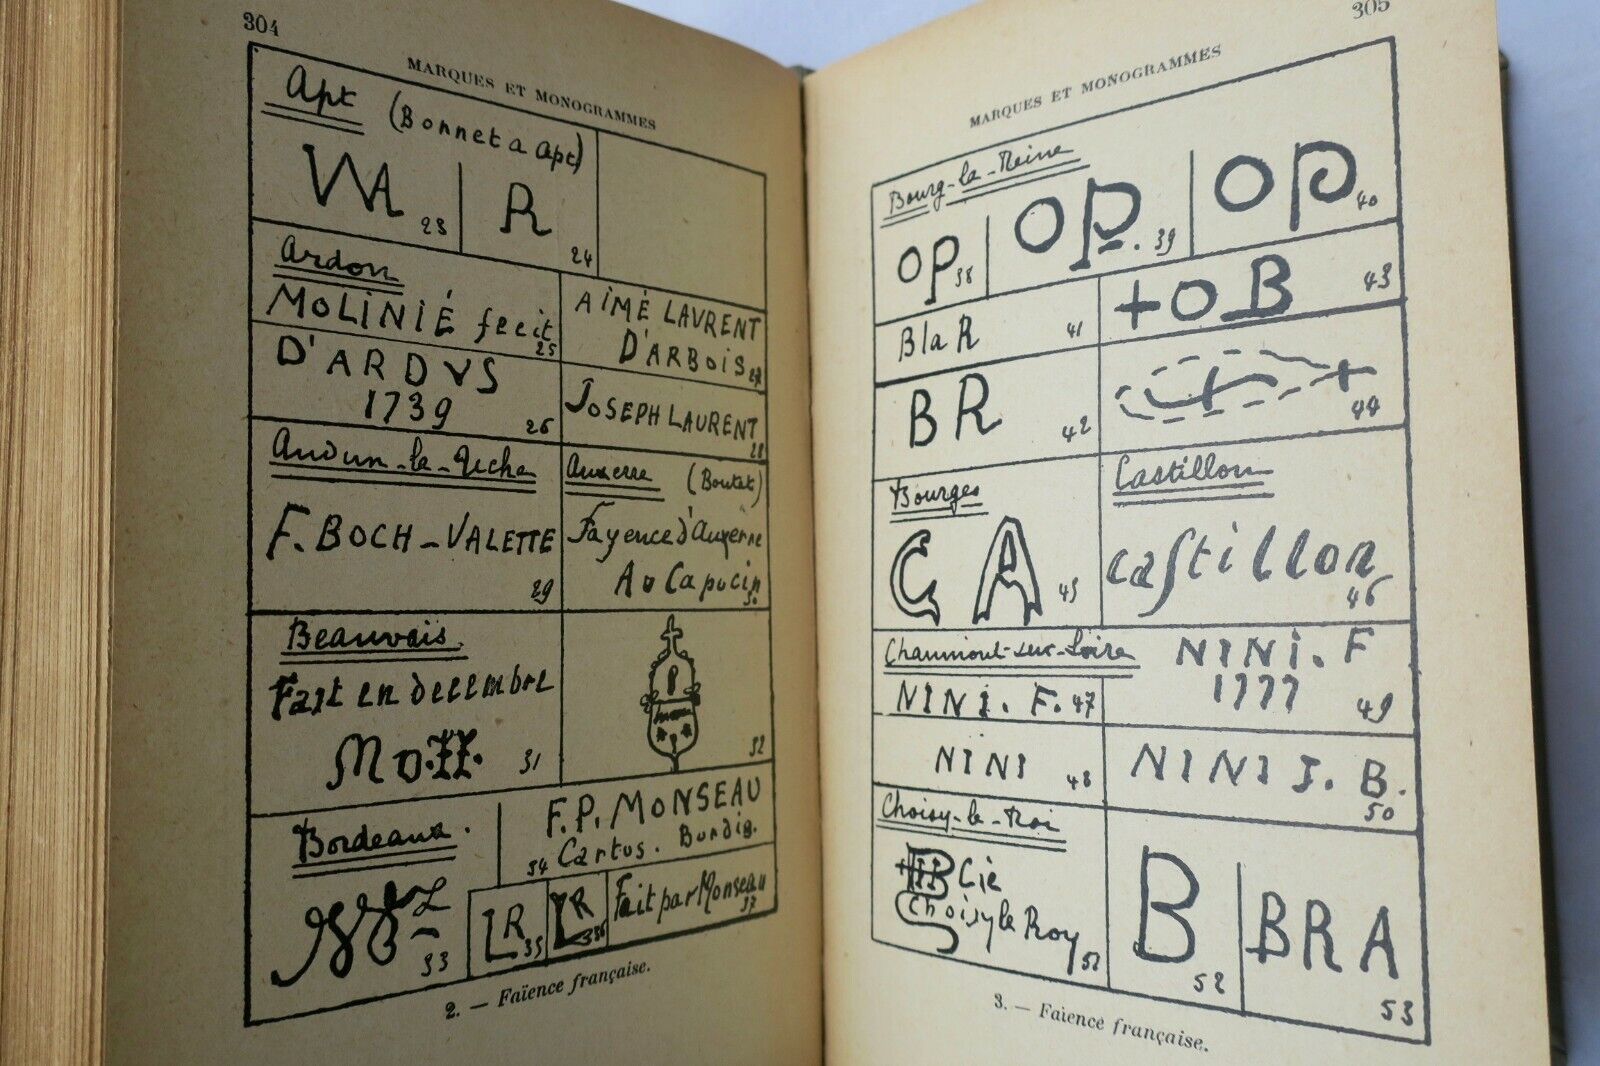 304
MARQUES ET MONOGRAMMES
Apt (Bonnet a Apt)
23
R 24
Ardon
MOLINIÉ fecit 25
D'ARDVS
1739 26
AIMÉ LAVRENT
D'ARBOIS 27
JOSEPH LAURENT 28
Audun-le-Tiche
F. BOCH-VALETTE 29
Auxerre (Boutet)
Fayence d'Auxerre
Au Capucin
30
Beauvais.
Fait en decembre
31
32
Bordeaux.
33
F.P. MONSEAU
34 Cartus. Burdig.
LR 35
LR 36
Fait par Monseau
37
2. — Faïence française.
305
MARQUES ET MONOGRAMMES
Bourg-la-Reine
OP 38
OP. 39
OP 40
BlaR 41
+OB 43
BR 42
44
Bourges
CA 45
Castillon
castillon
46
Chaumont-sur-Loire
NINI. F. 47
NINI. F
1777 49
NINI 48
NINI J. B.
50
Choisy-le-Roi
HB Cie
Choisy le Roy
51
B 52
BRA
53
3. — Faïence française.